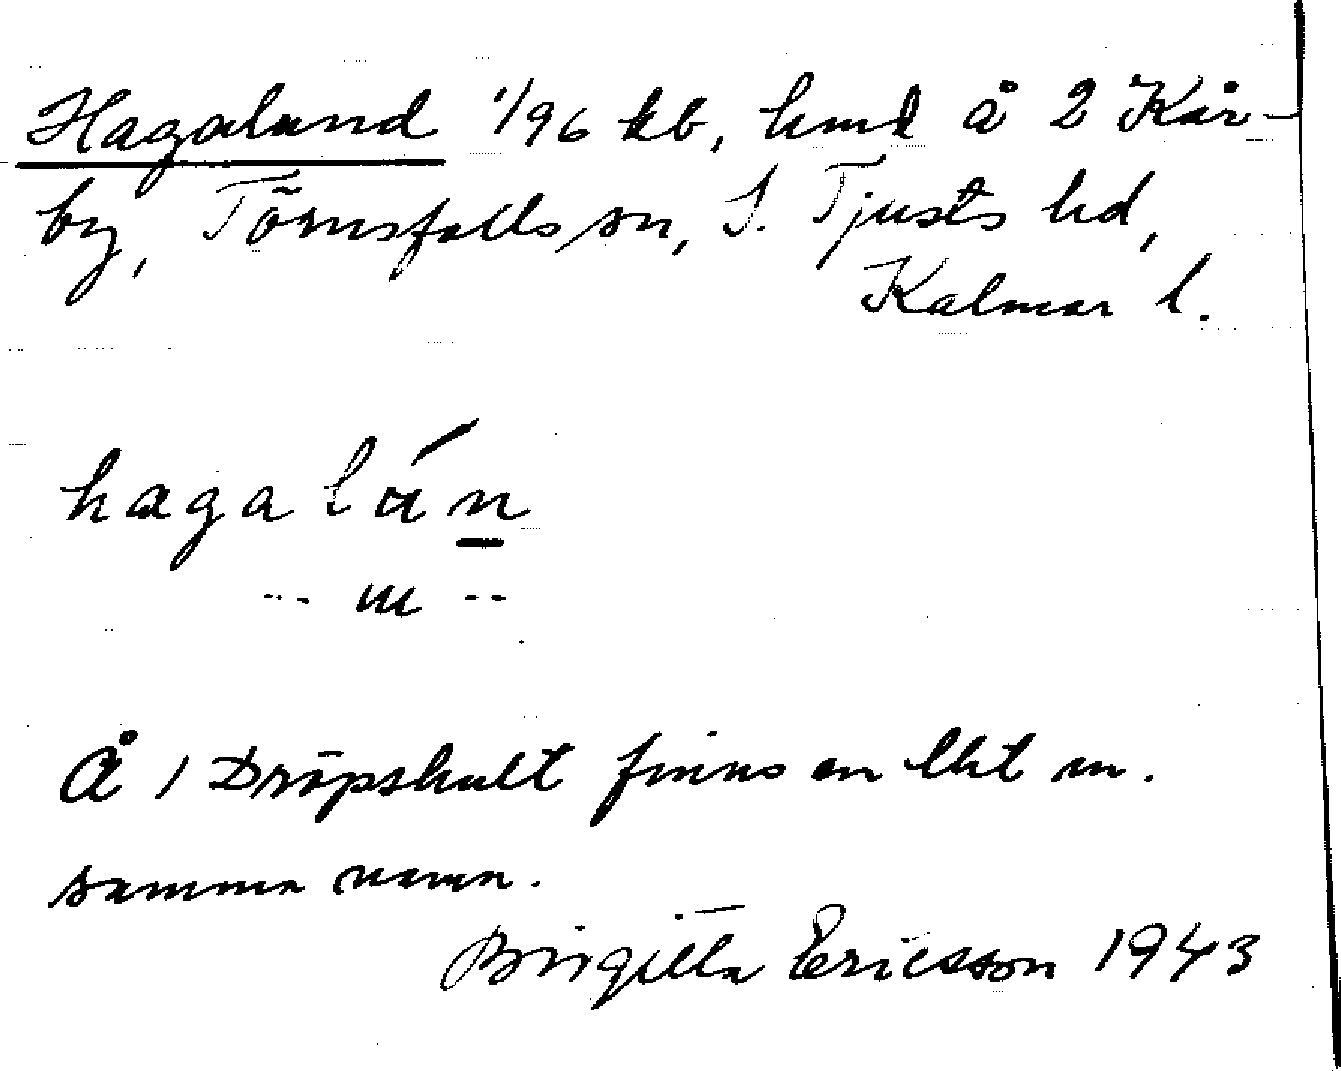 Hagalund 1/96 kb, hmd å 2 Kår-
by, Törnsfalls sn, S. Tjusts hd,
Kalmar l.
hagalún
-- m --
Å 1 Dröpshult finns en lht m.
samma namn.
Birgitta Ericsson 1943